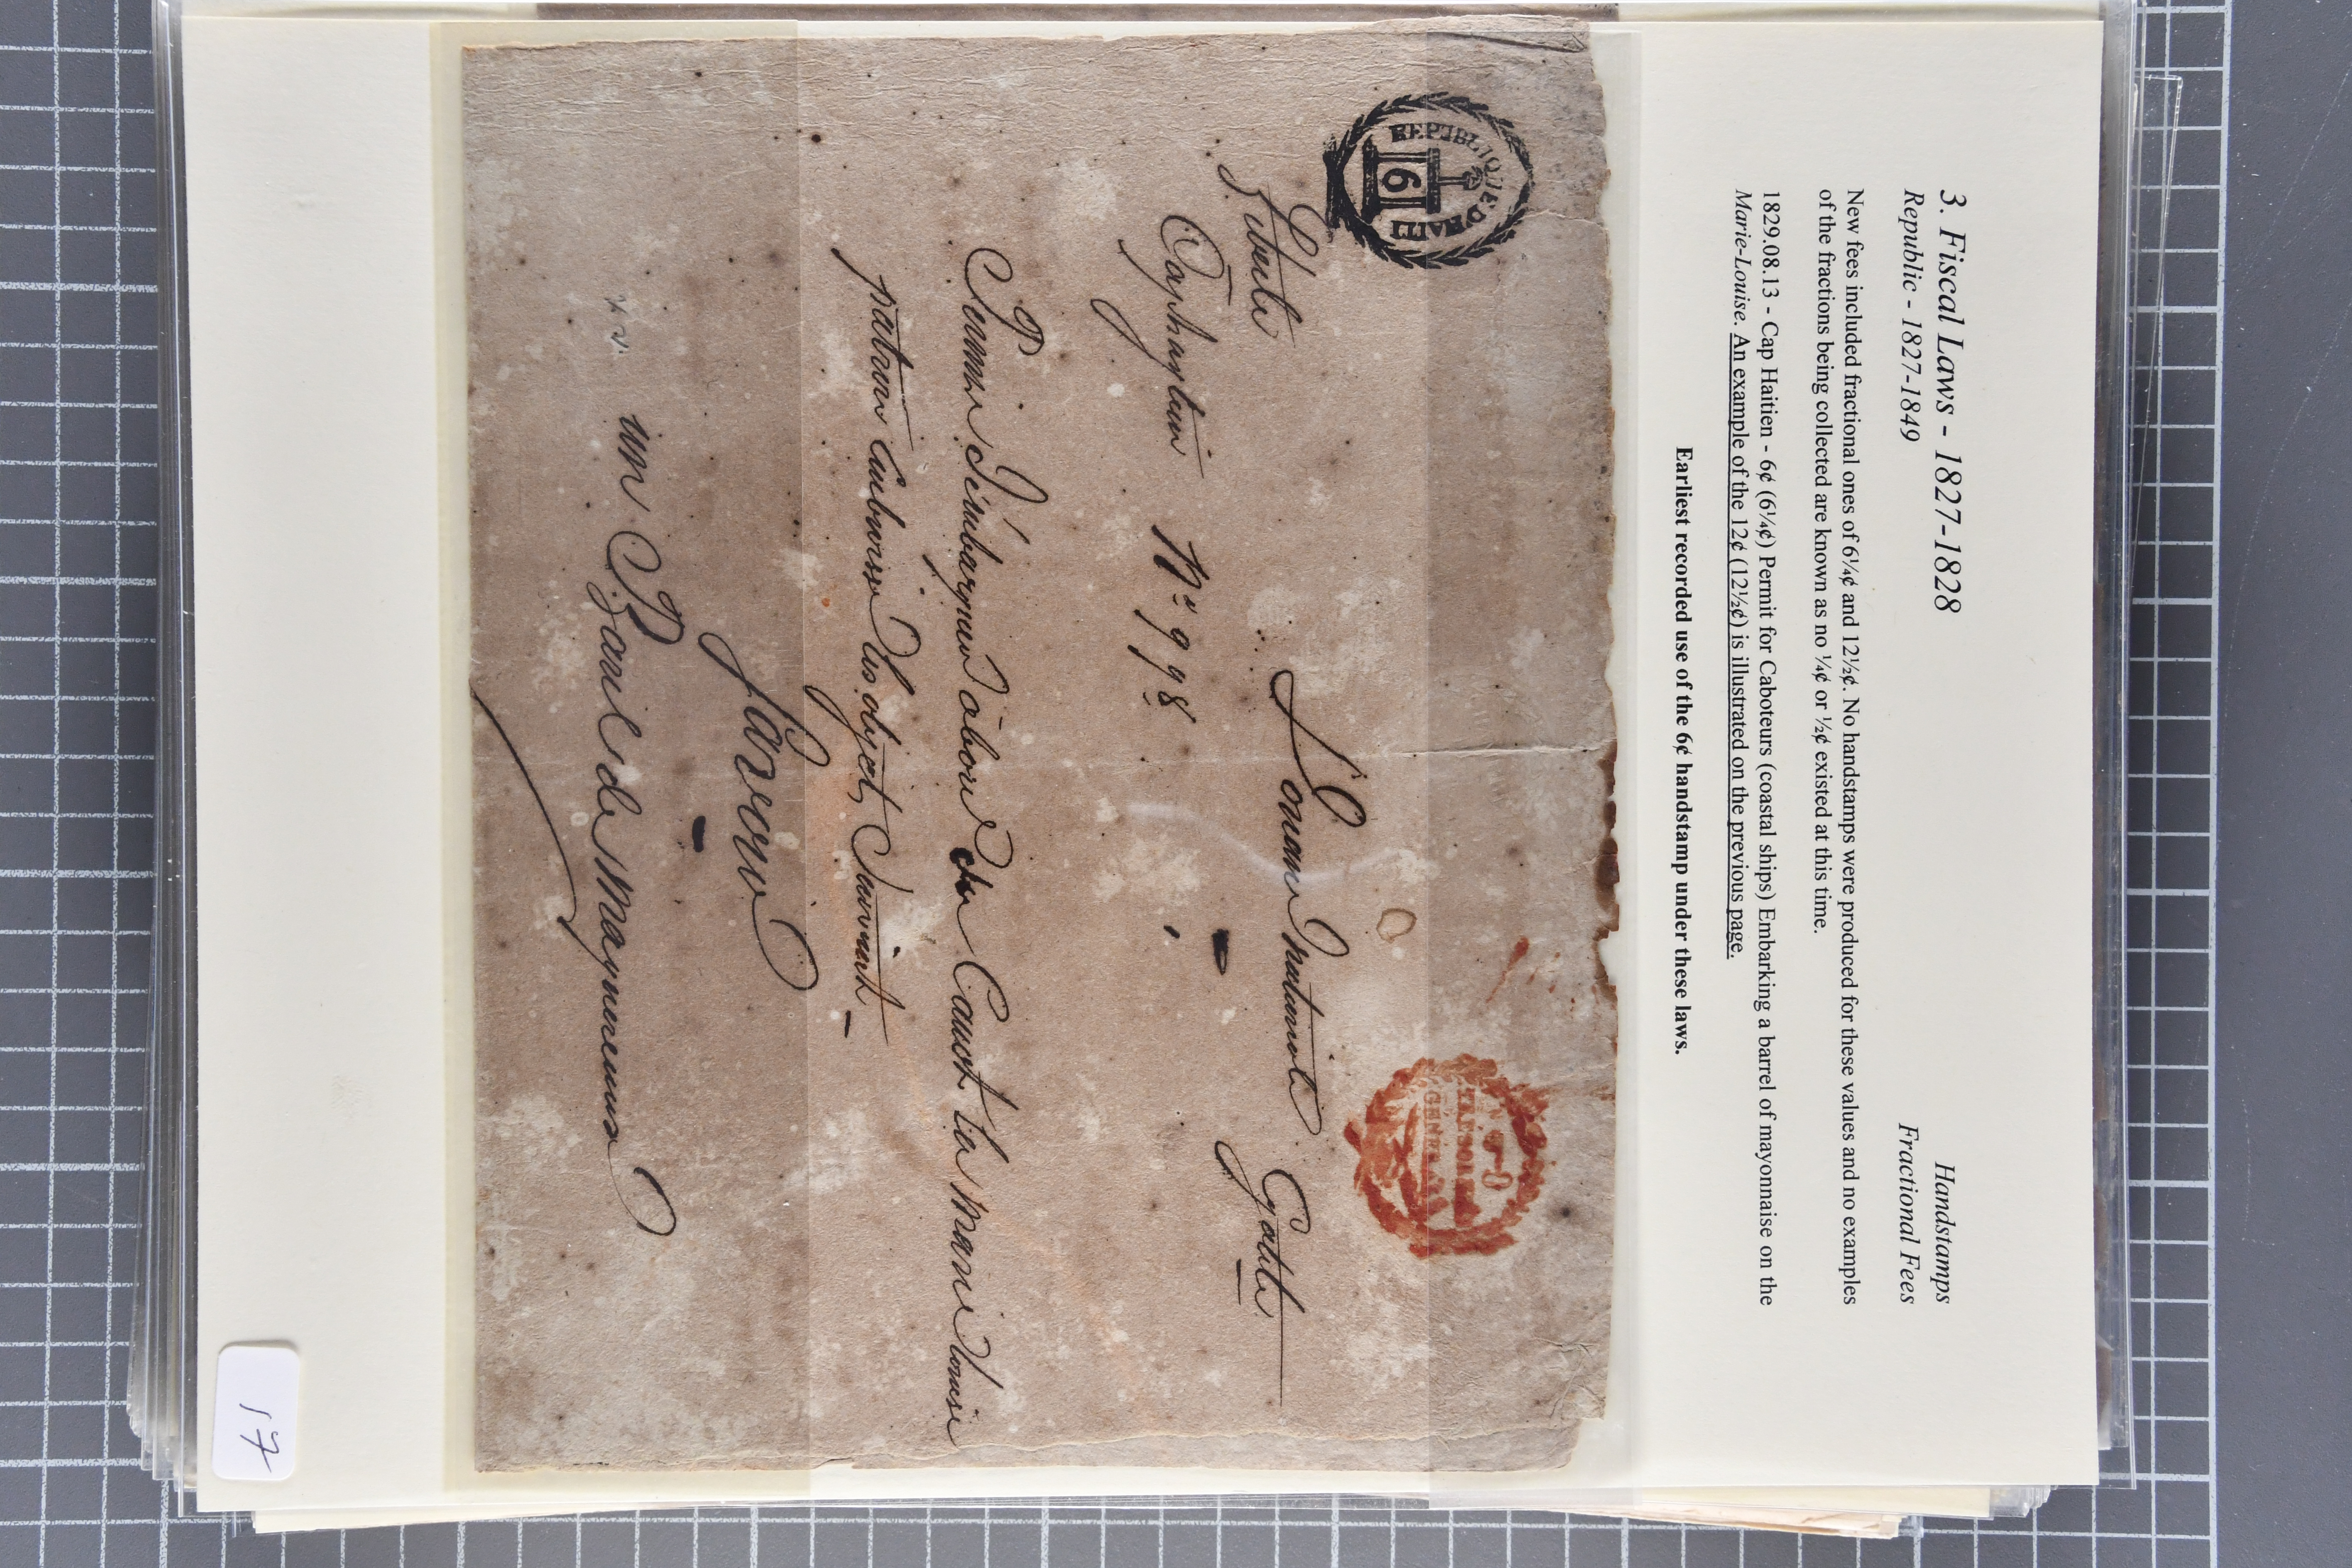 3. Fiscal Laws - 1827-1828 Handstamps
Republic - 1827-1849 Fractional Fees
New fees included fractional ones of 6¼¢ and 12½¢. No handstamps were produced for these values and no examples
of the fractions being collected are known as no ¼¢ or ½¢ existed at this time.
1829.08.13 - Cap Haitien - 6¢ (6¼¢) Permit for Caboteurs (coastal ships) Embarking a barrel of mayonnaise on the
Marie-Louise. An example of the 12¢ (12½¢) is illustrated on the previous page.
Earliest recorded use of the 6¢ handstamp under these laws.
REPUBLIQUE D'HAITI
6
TRESOR
GENERAL
Liberté Égalité
Nº 998
abord du Canot la Marie Louise
patron les objet Suivant
Savoir
un Baril de
17